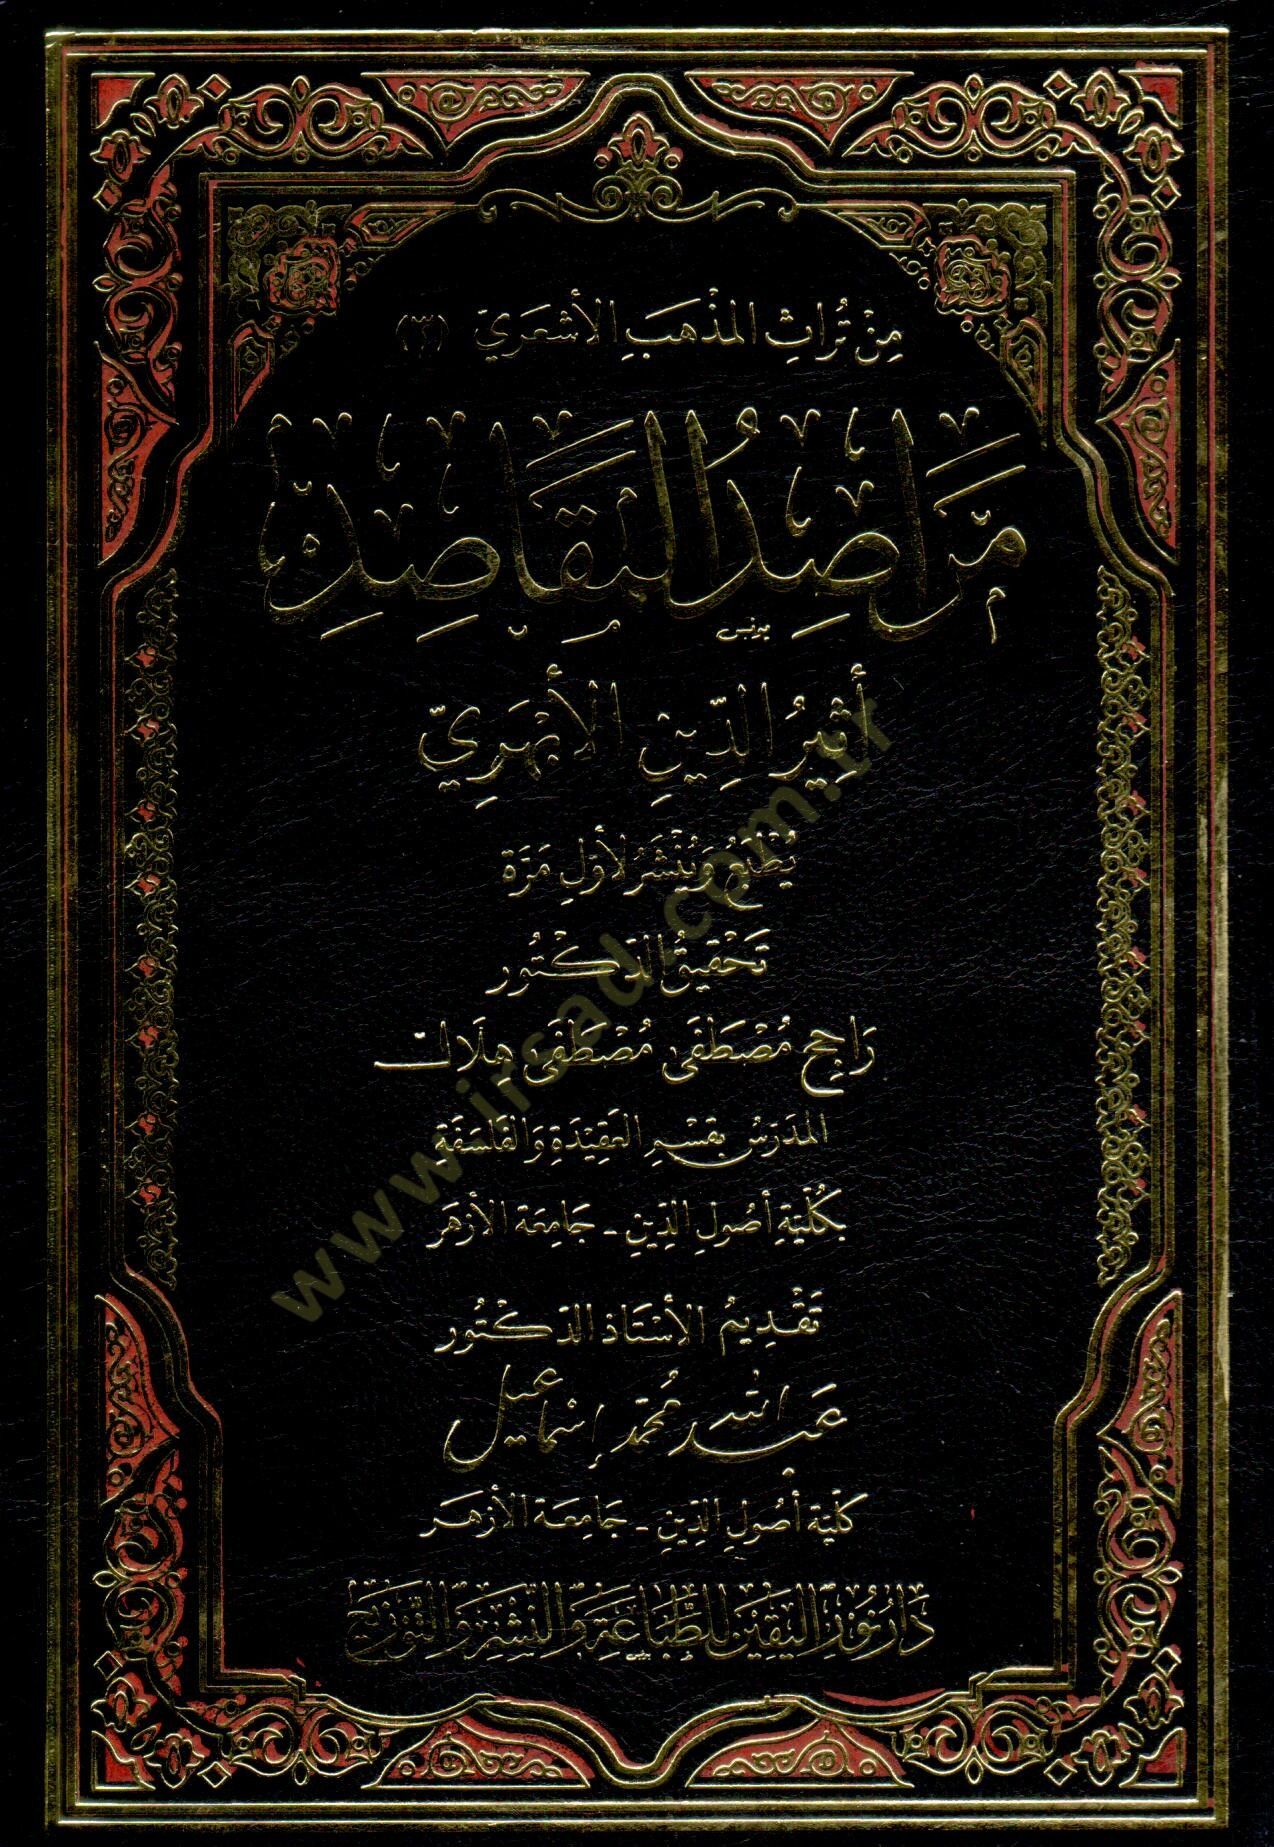 مِنْ تُرَاثِ المَذْهَبِ الأَشْعَرِيّ (٣)
مَرَاصِدُ المَقَاصِدِ
يونس
أَثِيرُ الدِّينِ الأَبْهَرِيّ
يُطْبَعُ وَيُنْشَرُ لأَوَّلِ مَرَّة
تَحْقِيقُ الدّكْتُور
رَاجِح مُصْطَفَى مُصْطَفَى هِلَال
المُدَرِّسُ بِقِسْمِ العَقِيدَةِ وَالفَلْسَفَةِ
بِكُلِّيَةِ أُصُولِ الدِّينِ - جَامِعَة الأَزْهَر
تَقْدِيم الأُسْتَاذ الدّكْتُور
عَبْد الله مُحَمَّد إِسْمَاعِيل
كُلِّيَّة أُصُولِ الدِّينِ - جَامِعَة الأَزْهَر
دَار نُورِ اليَقِين لِلطِّبَاعَةِ وَالنَّشْرِ وَالتَّوْزِيع
www.irsad.com.tr